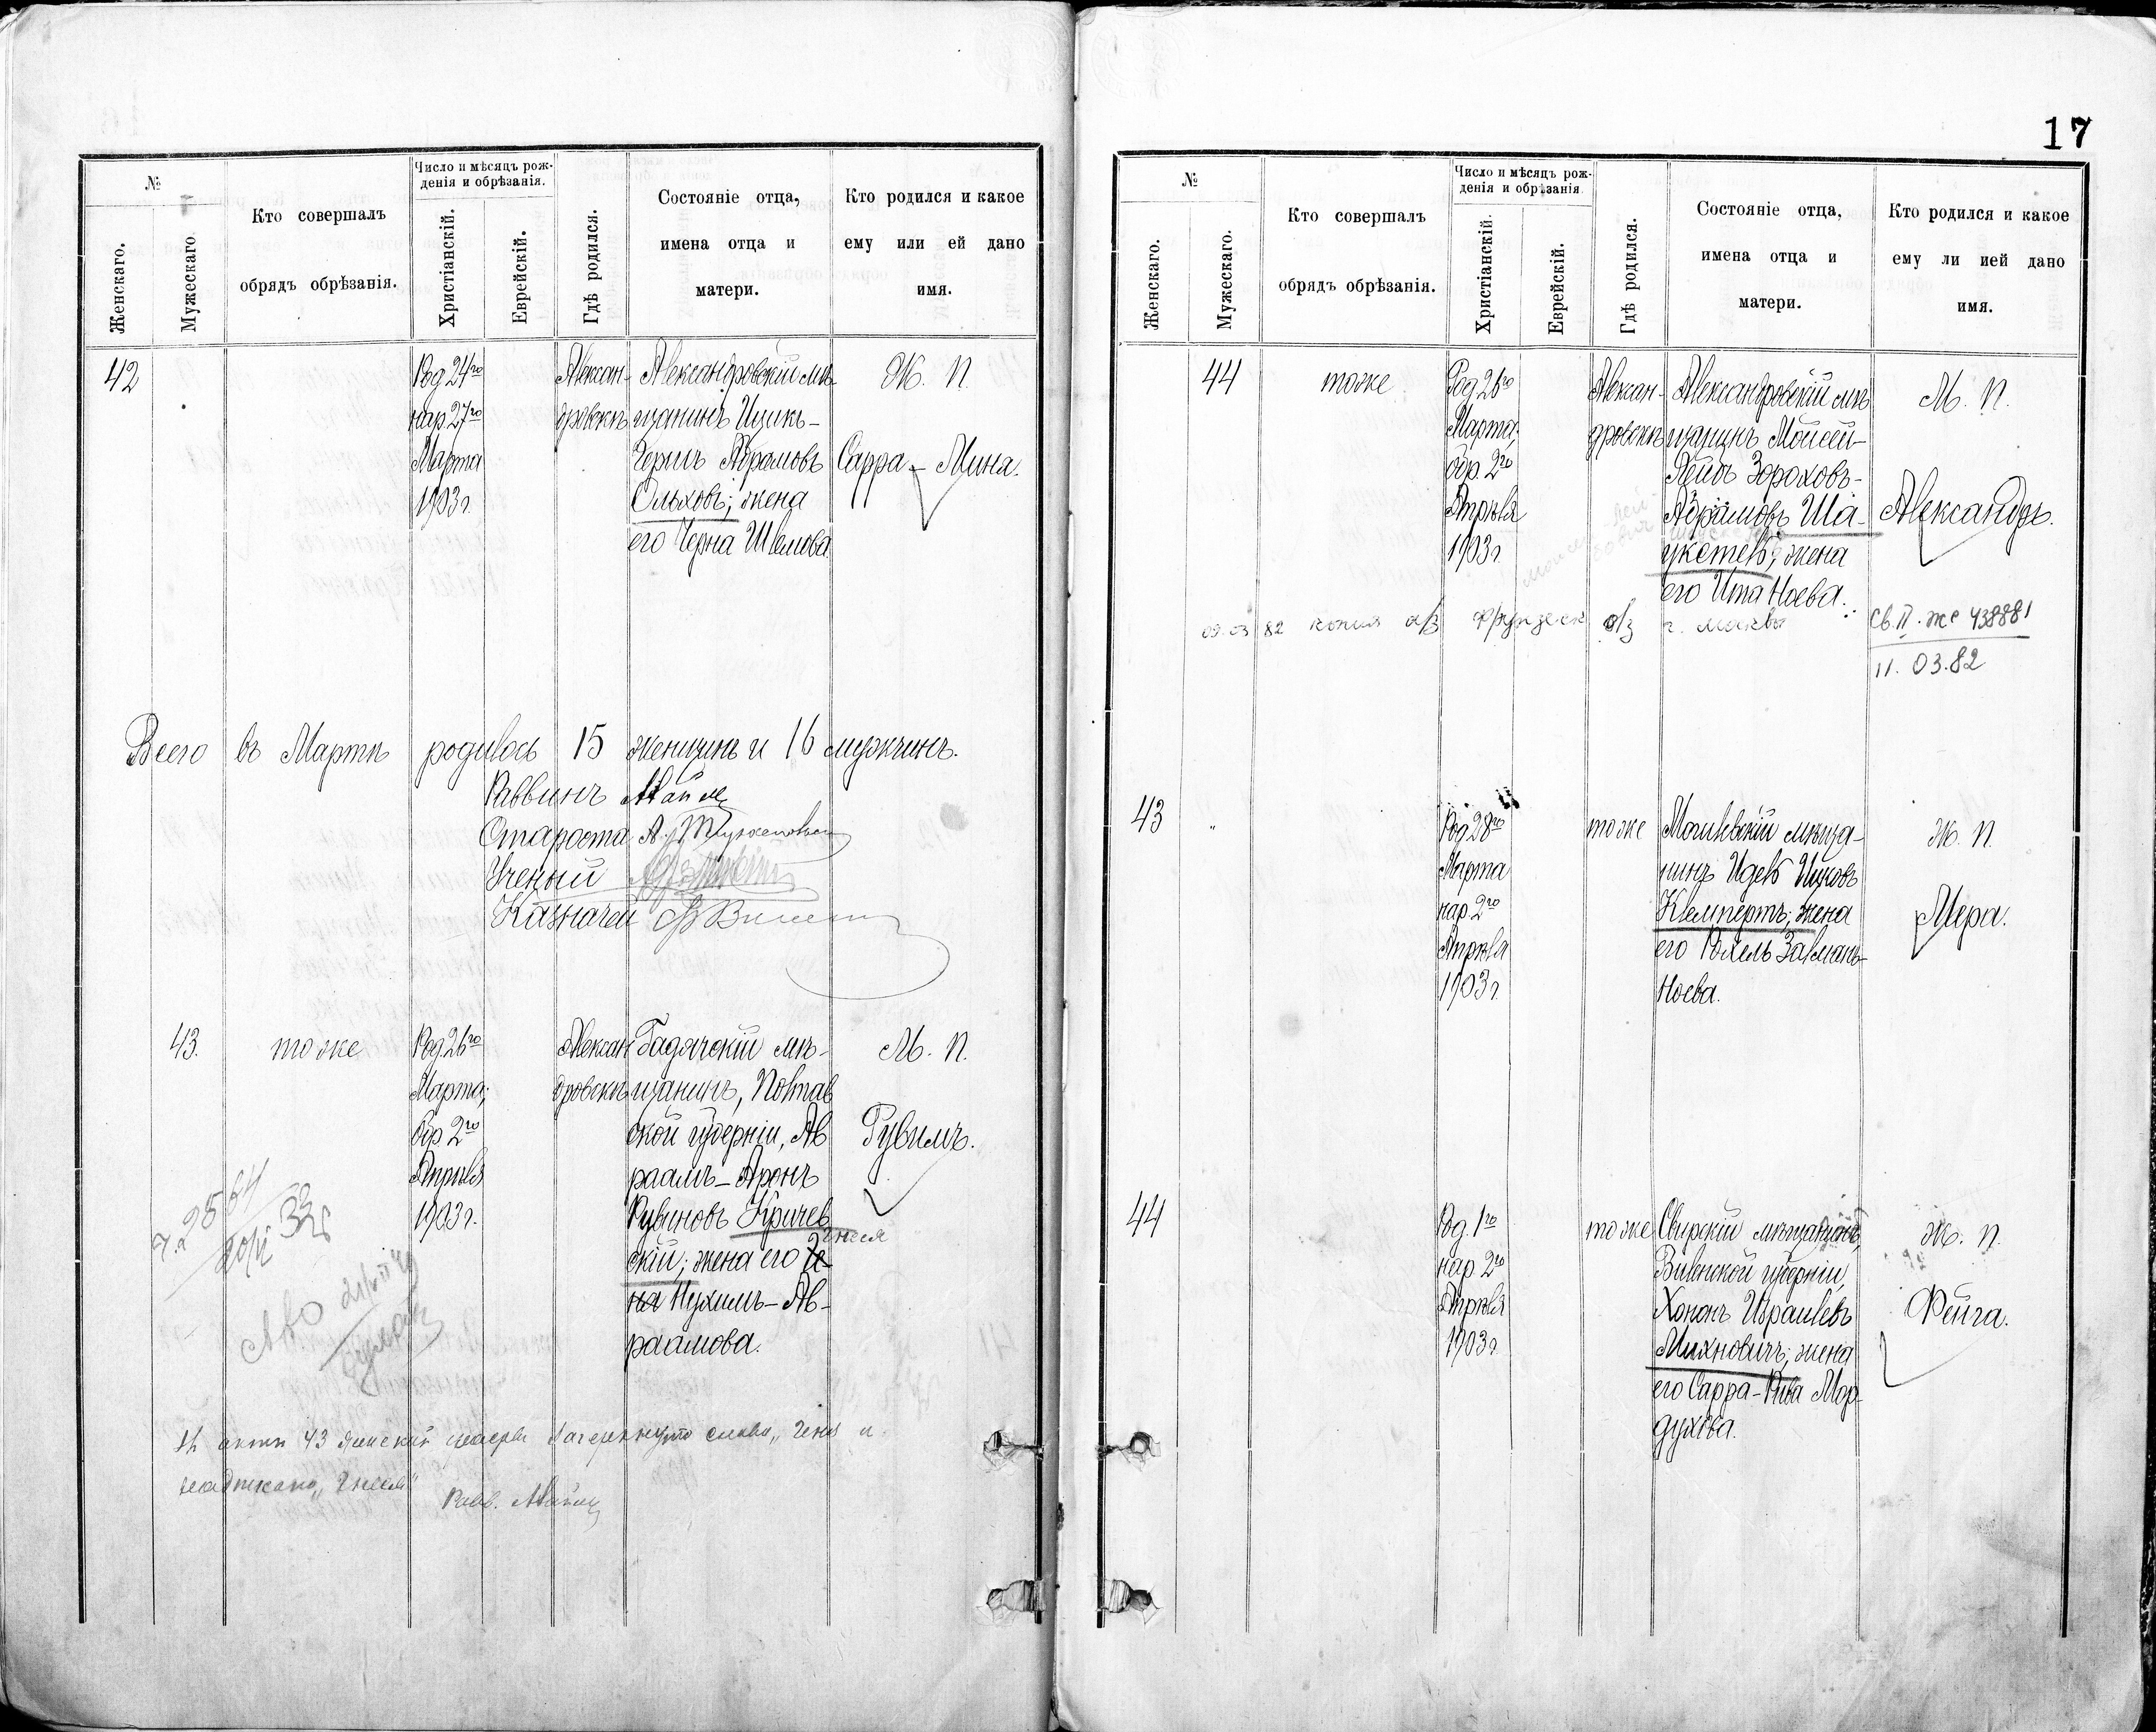 №
Женскаго.
Мужескаго
Кто совершалъ
обрядъ обрѣзанія.
Число и мѣсяцъ рож-
денія и обрѣзанія.
Христіанскій.
Еврейскій.
Гдѣ родился.
Состояніе отца,
имена отца и
матери.
Кто родился и какое
ему или ей дано
имя.
42
Род 24го
нар 27го
Марта
1903 г.
Алексан-
дровскъ
Александровскій мѣ-
щанинъ Ицикъ-
Гершъ Абрамовъ
Ольховъ; жена
его Черна Шлемова
Ж. П.
Сарра-Мина.
Всего въ Мартѣ родилось 15 женщинъ и 16 мужчинъ.
Раввинъ
Староста А.
Ученый
Казначей
43.
тоже
Род 26го
Марта;
обр 2го
Апрѣля
1903 г.
Алексан
дровскъ
Гадячскій мѣ-
щанинъ, Полтав
ской губерніи, Ав
раамъ-Аронъ
Рувиновъ Кричев
скій; жена его Че
на Нухимъ-Ав-
раамова.
М. П.
Рувимъ.
43
слова „
Рав.
17
№
Женскаго.
Мужескаго.
Кто совершалъ
обрядъ обрѣзанія.
Число и мѣсяцъ рож-
денія и обрѣзанія
Христіанскій.
Еврейскій.
Гдѣ родился.
Состояніе отца,
имена отца и
матери.
Кто родился и какое
ему ли ией дано
имя.
44
тоже
Род 26го
Марта;
обр. 2го
Апрѣля
1903 г.
Алексан-
дровскъ
Александровскій мѣ
щанинъ Мойсей-
Лейбъ Зораховъ-
Абрамовъ Ша-
укетель; жена
его Ита Ноева.
М. П.
Александръ.
09.03 82 копия о/з Фрунзен о/з г. Москвы
Св. II. жс 438881
11.03.82
43
"
Род 28го
Марта
нар 2го
Апрѣля
1903 г.
тоже
Могилевскій мѣща-
нинъ Идель Ицковъ
Клемпертъ; жена
его Рохель Залманъ-
Ноева.
Ж. П.
Мера.
44
Род. 1го
нар 2го
Апрѣля
1903 г.
тоже
Свирскій мѣщанинъ,
Виленской губерніи,
Хононъ Израилевъ
Михновичъ; жена
его Сарра-Рива Мор-
духова.
Ж. П.
Фейга.